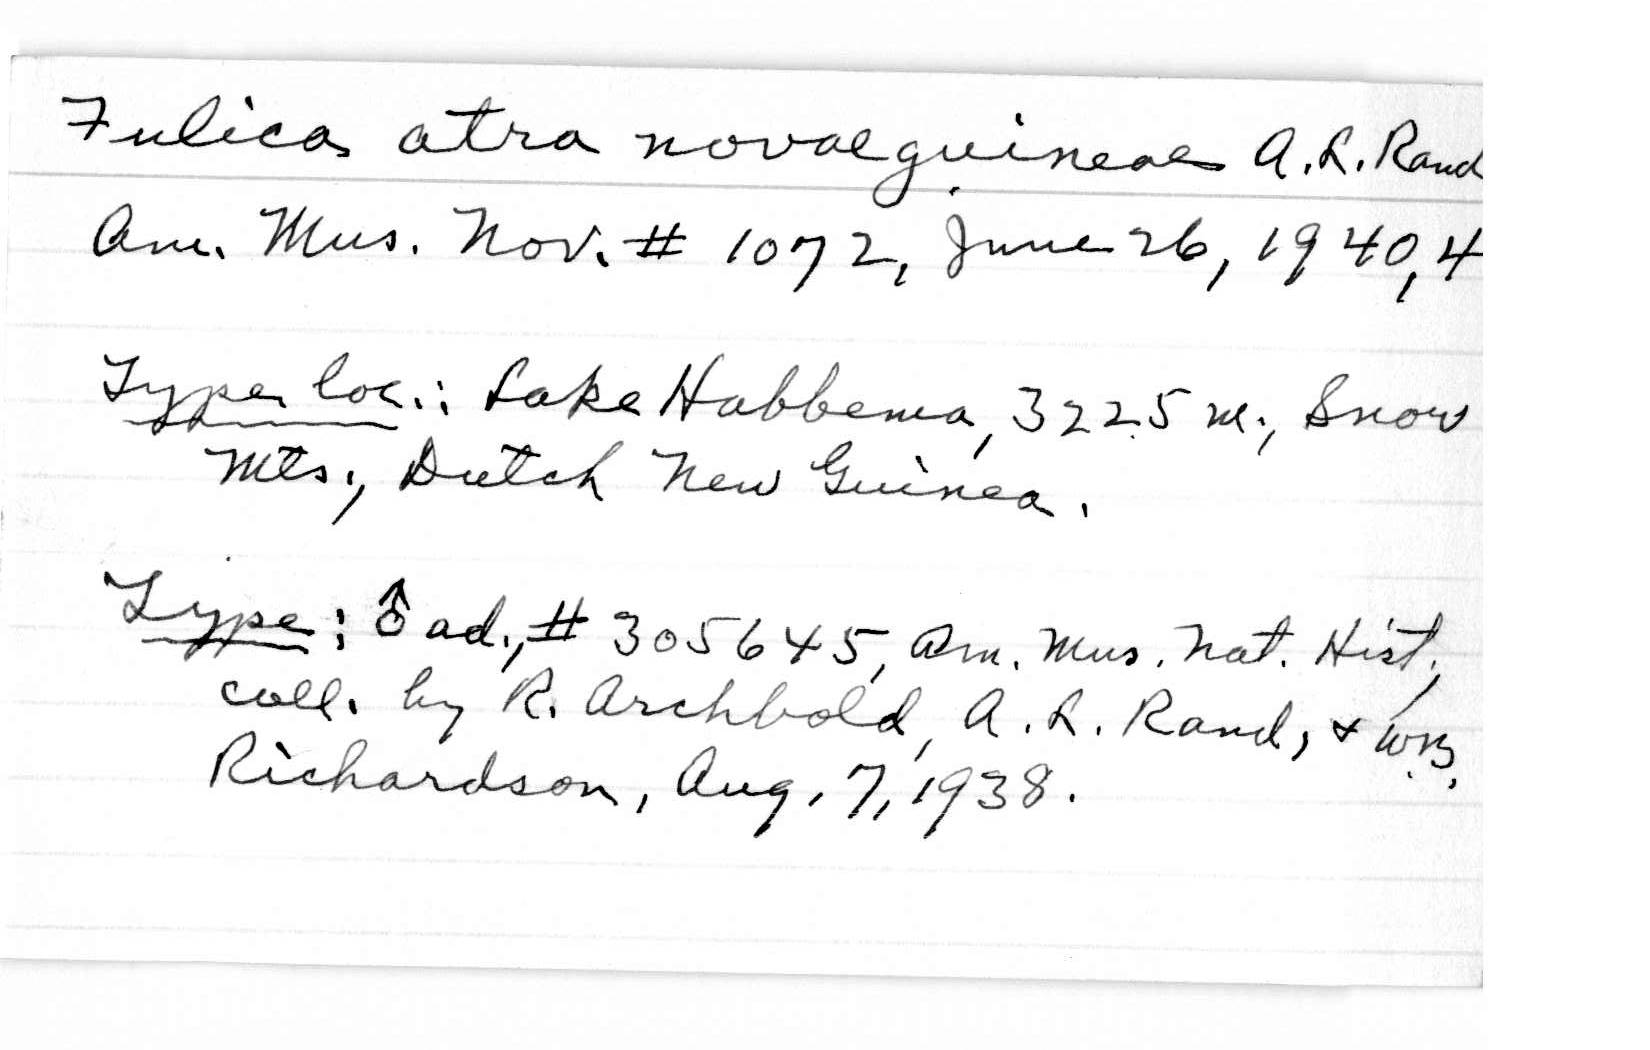 Fulica atra novaeguineae A.L. Rand
Am. Mus. Nov. # 1072, June 26, 1940, 4
Type loc.: Lake Habbema, 3225 m., Snow
Mts., Dutch New Guinea.
Type: ♂ ad., # 305645, Am. Mus. Nat. Hist.,
coll. by R. Archbold, A. L. Rand, & W.B.
Richardson, Aug. 7, 1938.